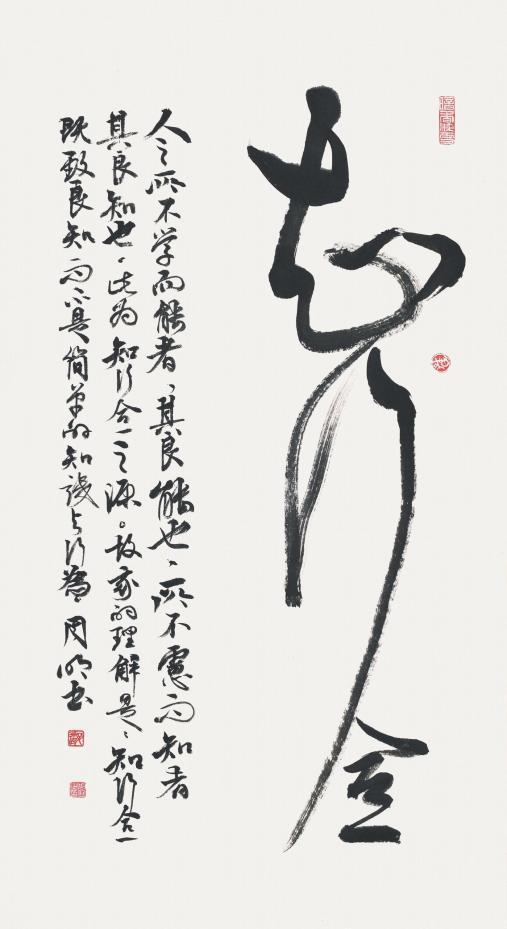 知行合一
人之所不学而能者、其良能也、所不慮而知者
其良知也、此为知行合一之源。故我的理解是、知行合一
既致良知而不是简单的知識与行為 周明书